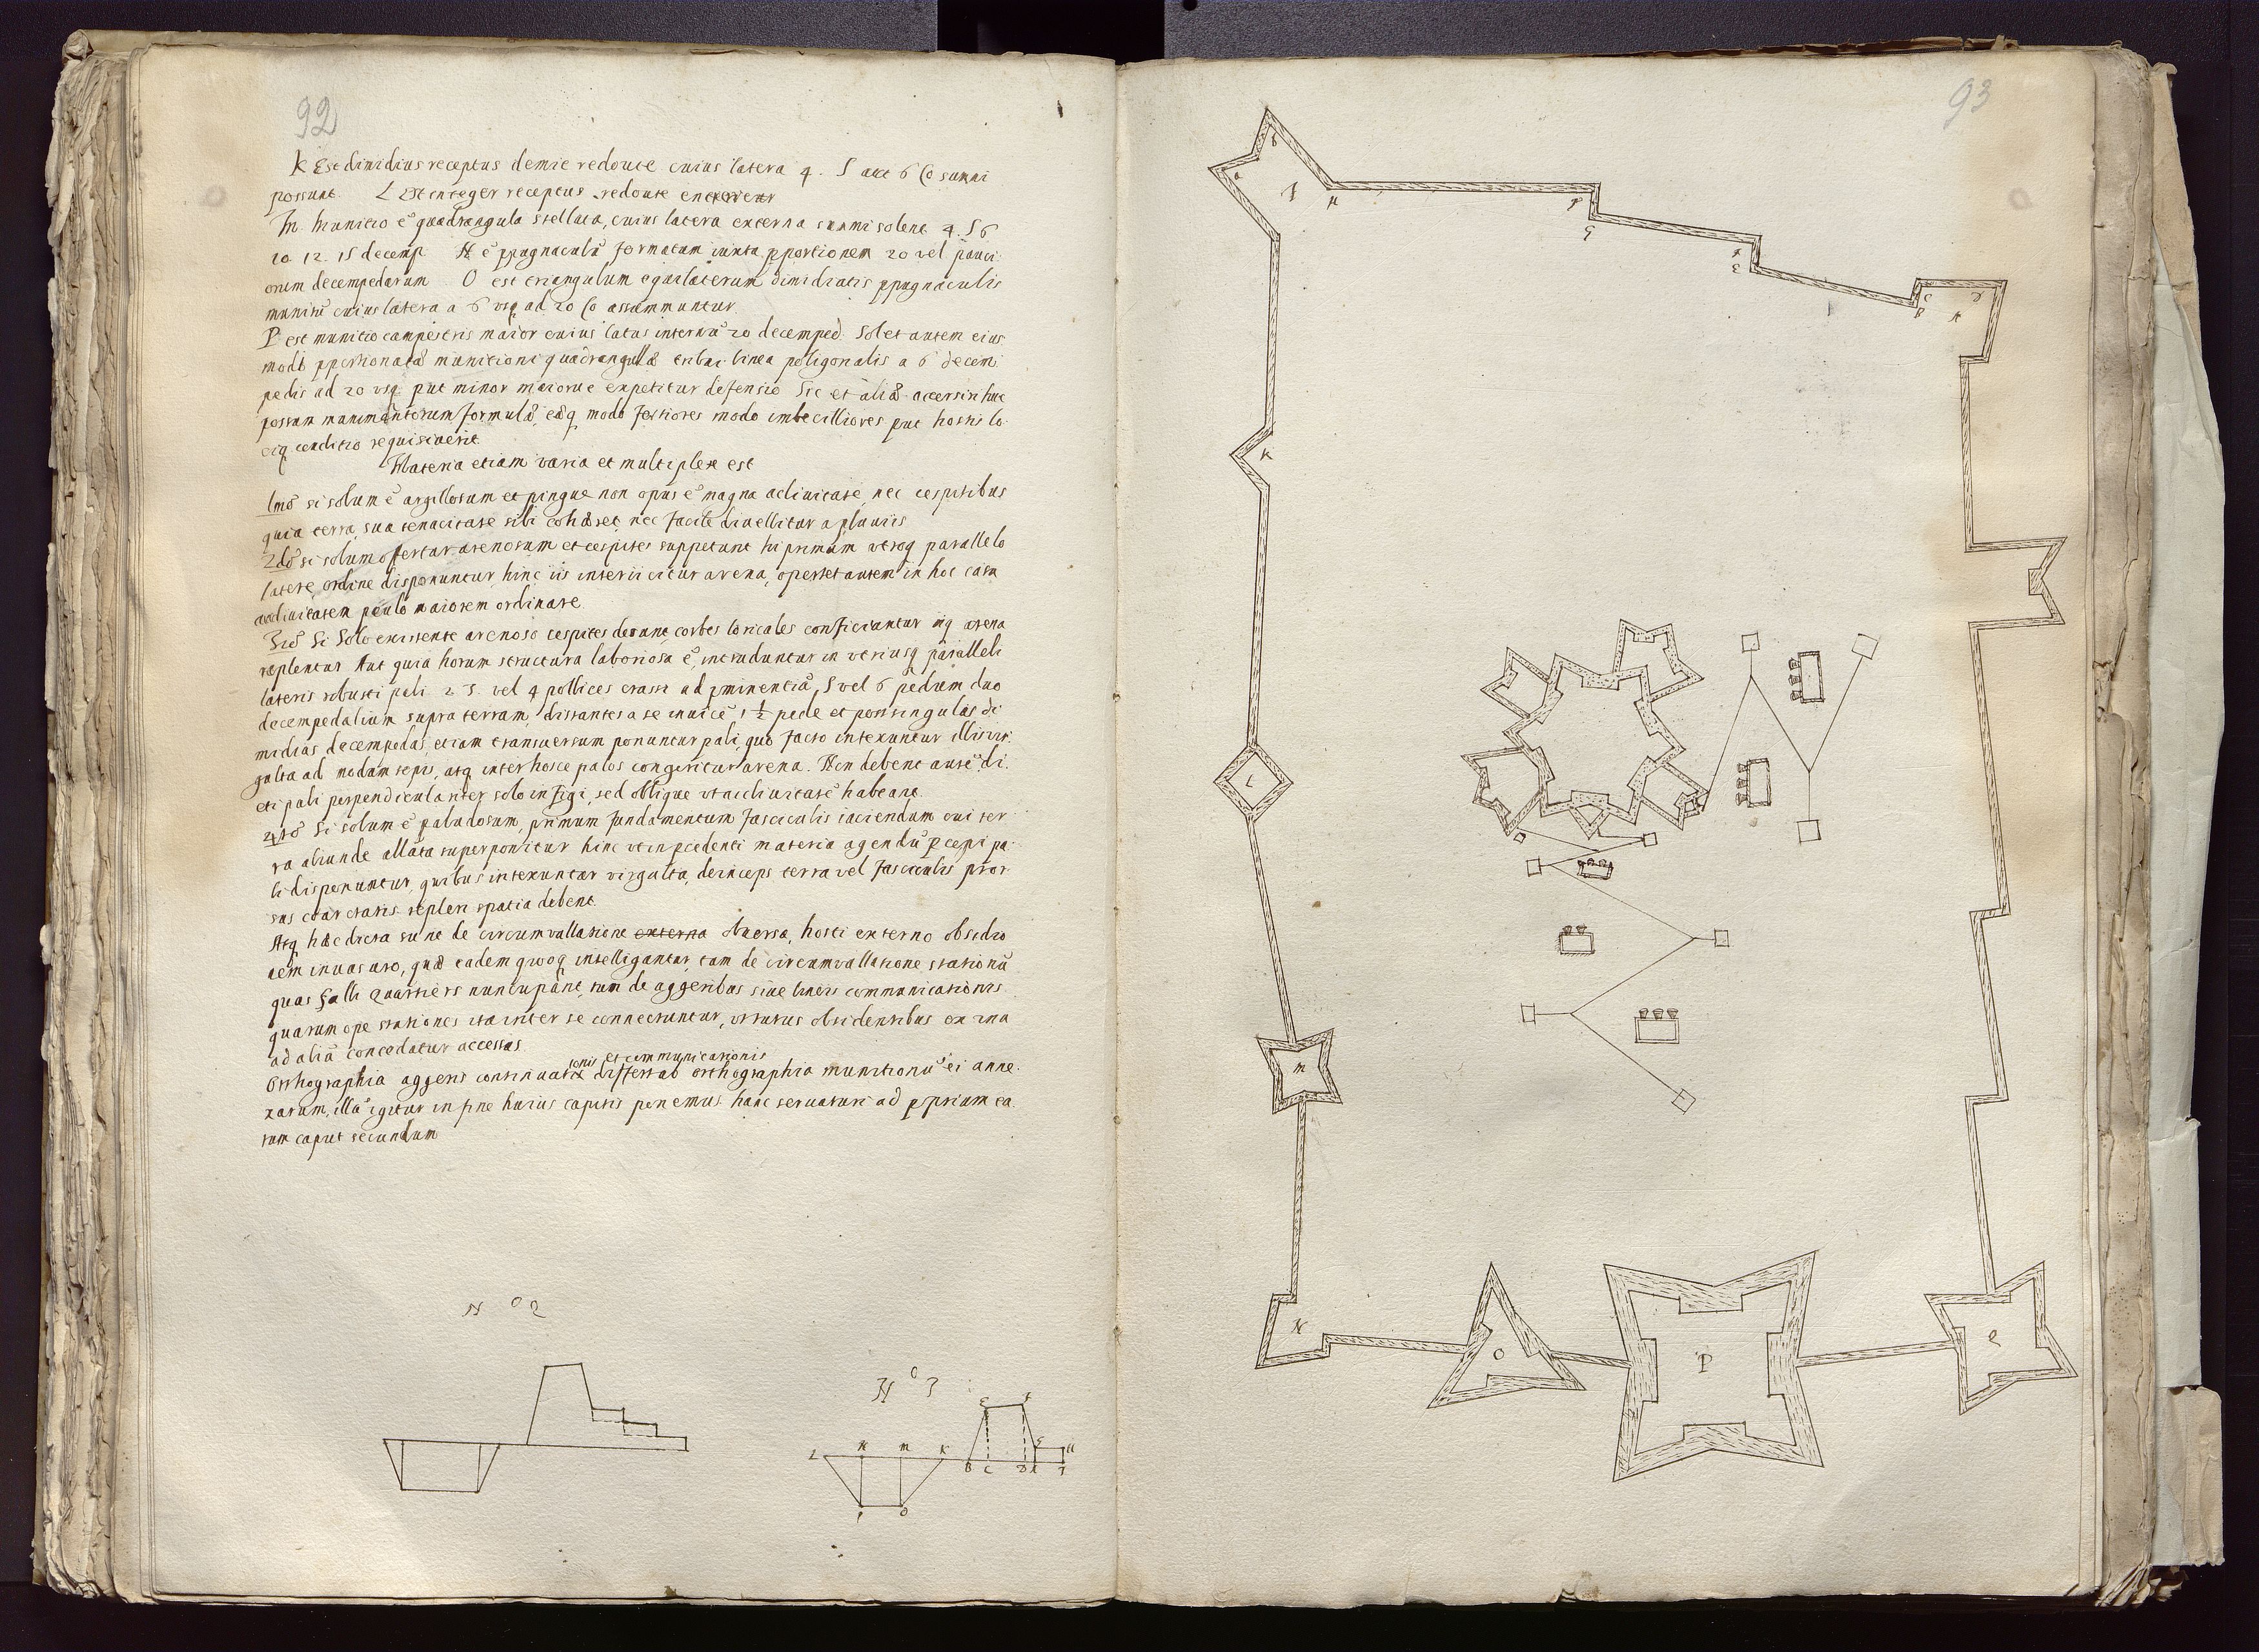 92
K Est dimidius receptus demie redoute cuius latera 4. 5 aut 6 sumi
possunt. L Est integer receptus redoute
M. Munitio ē quadrangula stellata, cuius latera externa summi solent 4. 5 6
10 12. 15 decemp. N ē ppugnaculū formatum iuxta pportionem 20 vel pauci
orum decempedarum O est triangulum equilaterum dimidiatis ppugnaculis
munitū cuius latera a 6 usq ad 20 assummuntur.
P est munitio campestris maior cuius latus internū 20 decemped. Solet autem eius
modi pportionata munitioni quadrangulæ tribui linea poligonalis a 6 decem
pedis ad 20 usq. put minor maiorue expetitur defensio Sic et aliæ accersiri huc
possunt munimentorum formulæ, eæq modo fortiores modo imbecilliores put hostis lo
ciq conditio requisiuerit.
Materia etiam varia et multiplex est
1mō si solum ē argillosum et pingue non opus ē magna acliuitate, nec cespitibus
quia terra, sua tenacitate sibi cohæret, nec facile diuellitur a pluuiis
2dō si solum offertur arenosum et cespites suppetunt hi primum utroq parallelo
latere, ordine disponuntur, hinc iis interiicitur arena, oportet autem in hoc casu
acliuitatem paulo maiorem ordinare.
3iō Si Solo existente arenoso cespites desunt corbes loricales conficiantur iiq arena
replentur Aut quia horum structura laboriosa ē, intruduntur in utriusq paralleli
lateris robusti pali 2 3. vel 4 pollices crassi ad pminentiā, 5 vel 6 pedum duo
decempedalium supra terram, distantes a se inuicē 1 1/2 pede et post singulas di
midias decempedas, etiam transuersum ponuntur pali, quo facto intexuntur illis vir
gulta ad modum sepis, atq inter hosce palos congeritur arena. Non debent autē di
cti pali perpendiculariter solo infigi, sed oblique ut acliuitatē habeant.
4tō Si solum ē paludosum, primum fundamentum fasciculis iaciendum cui ter
ra aliunde allata superponitur hinc ut in pcedenti materia agendū pcepi pa
li disponuntur, quibus intexuntur virgulta, deinceps terra vel fasciculis pror
sus coarctatis repleri spatia debent.
Atq hæc dicta sunt de circumvallatione externa obuersa, hosti externo obsidio
nem inuasuro, quæ eadem quoq intelligantur, tam de circumvallatione stationū
quas Galli Quartiers nuncupant, tum de aggeribus siue lineis communicationis
quarum ope stationes ita inter se connectuntur, ut tutus obsidentibus ex una
ad aliā concedatur accessus.
et communicationis
Orthographia aggeris continuationis differt ab orthographia munitionū ei anne
xarum, illā igitur in fine huius capitis ponemus hanc seruaturi ad pprium ea
rum caput secundum
N o 2
N o 3
E F
L N M K G H
B C D A I
P O
93
b
a I
H
F
G
E
C D
B A
K
L
M
N
O
P
Q